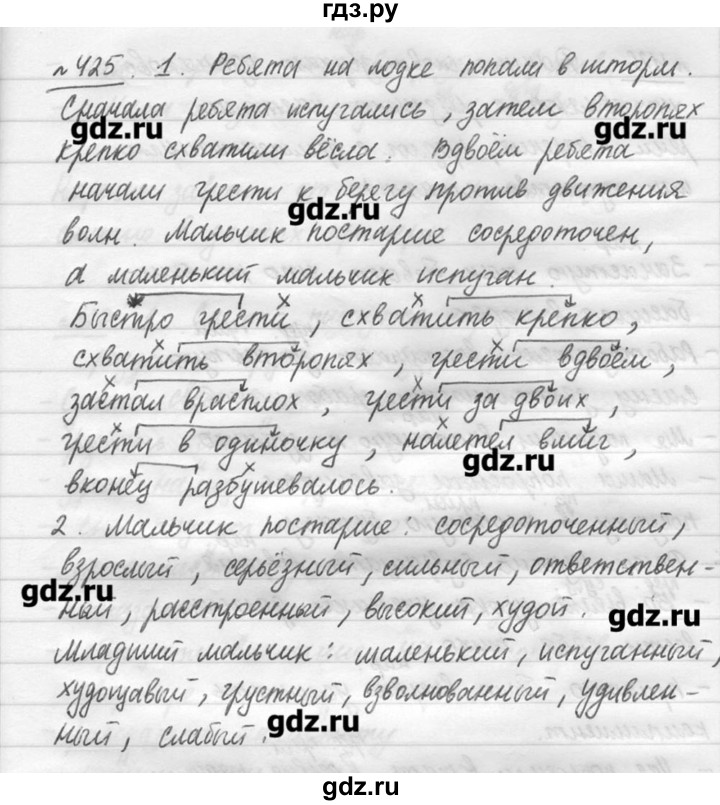 гдз.ру
№425. 1. Ребята на лодке попали в шторм.
Сначала ребята испугались, затем второпях
gdz.ru gdz.ru
крепко схватили вёсла. Вдвоём ребята
начали грести к берегу против движения
gdz.ru
волн. Мальчик постарше сосредоточен,
а маленький мальчик испуган.
Быстро грести, схватить крепко,
схватить второпях, грести вдвоём,
застал врасплох, грести за двоих,
грести в одиночку, налетел вмиг,
gdz.ru
вконец разбушевалось.
2. Мальчик постарше: сосредоточенный,
взрослый, серьёзный, сильный, ответствен-
gdz.ru
ный, расстроенный, высокий, худой.
gdz.ru
Младший мальчик: маленький, испуганный,
худощавый, грустный, взволнованный, удивлен-
ный, слабый.
gdz.ru
gdz.ru